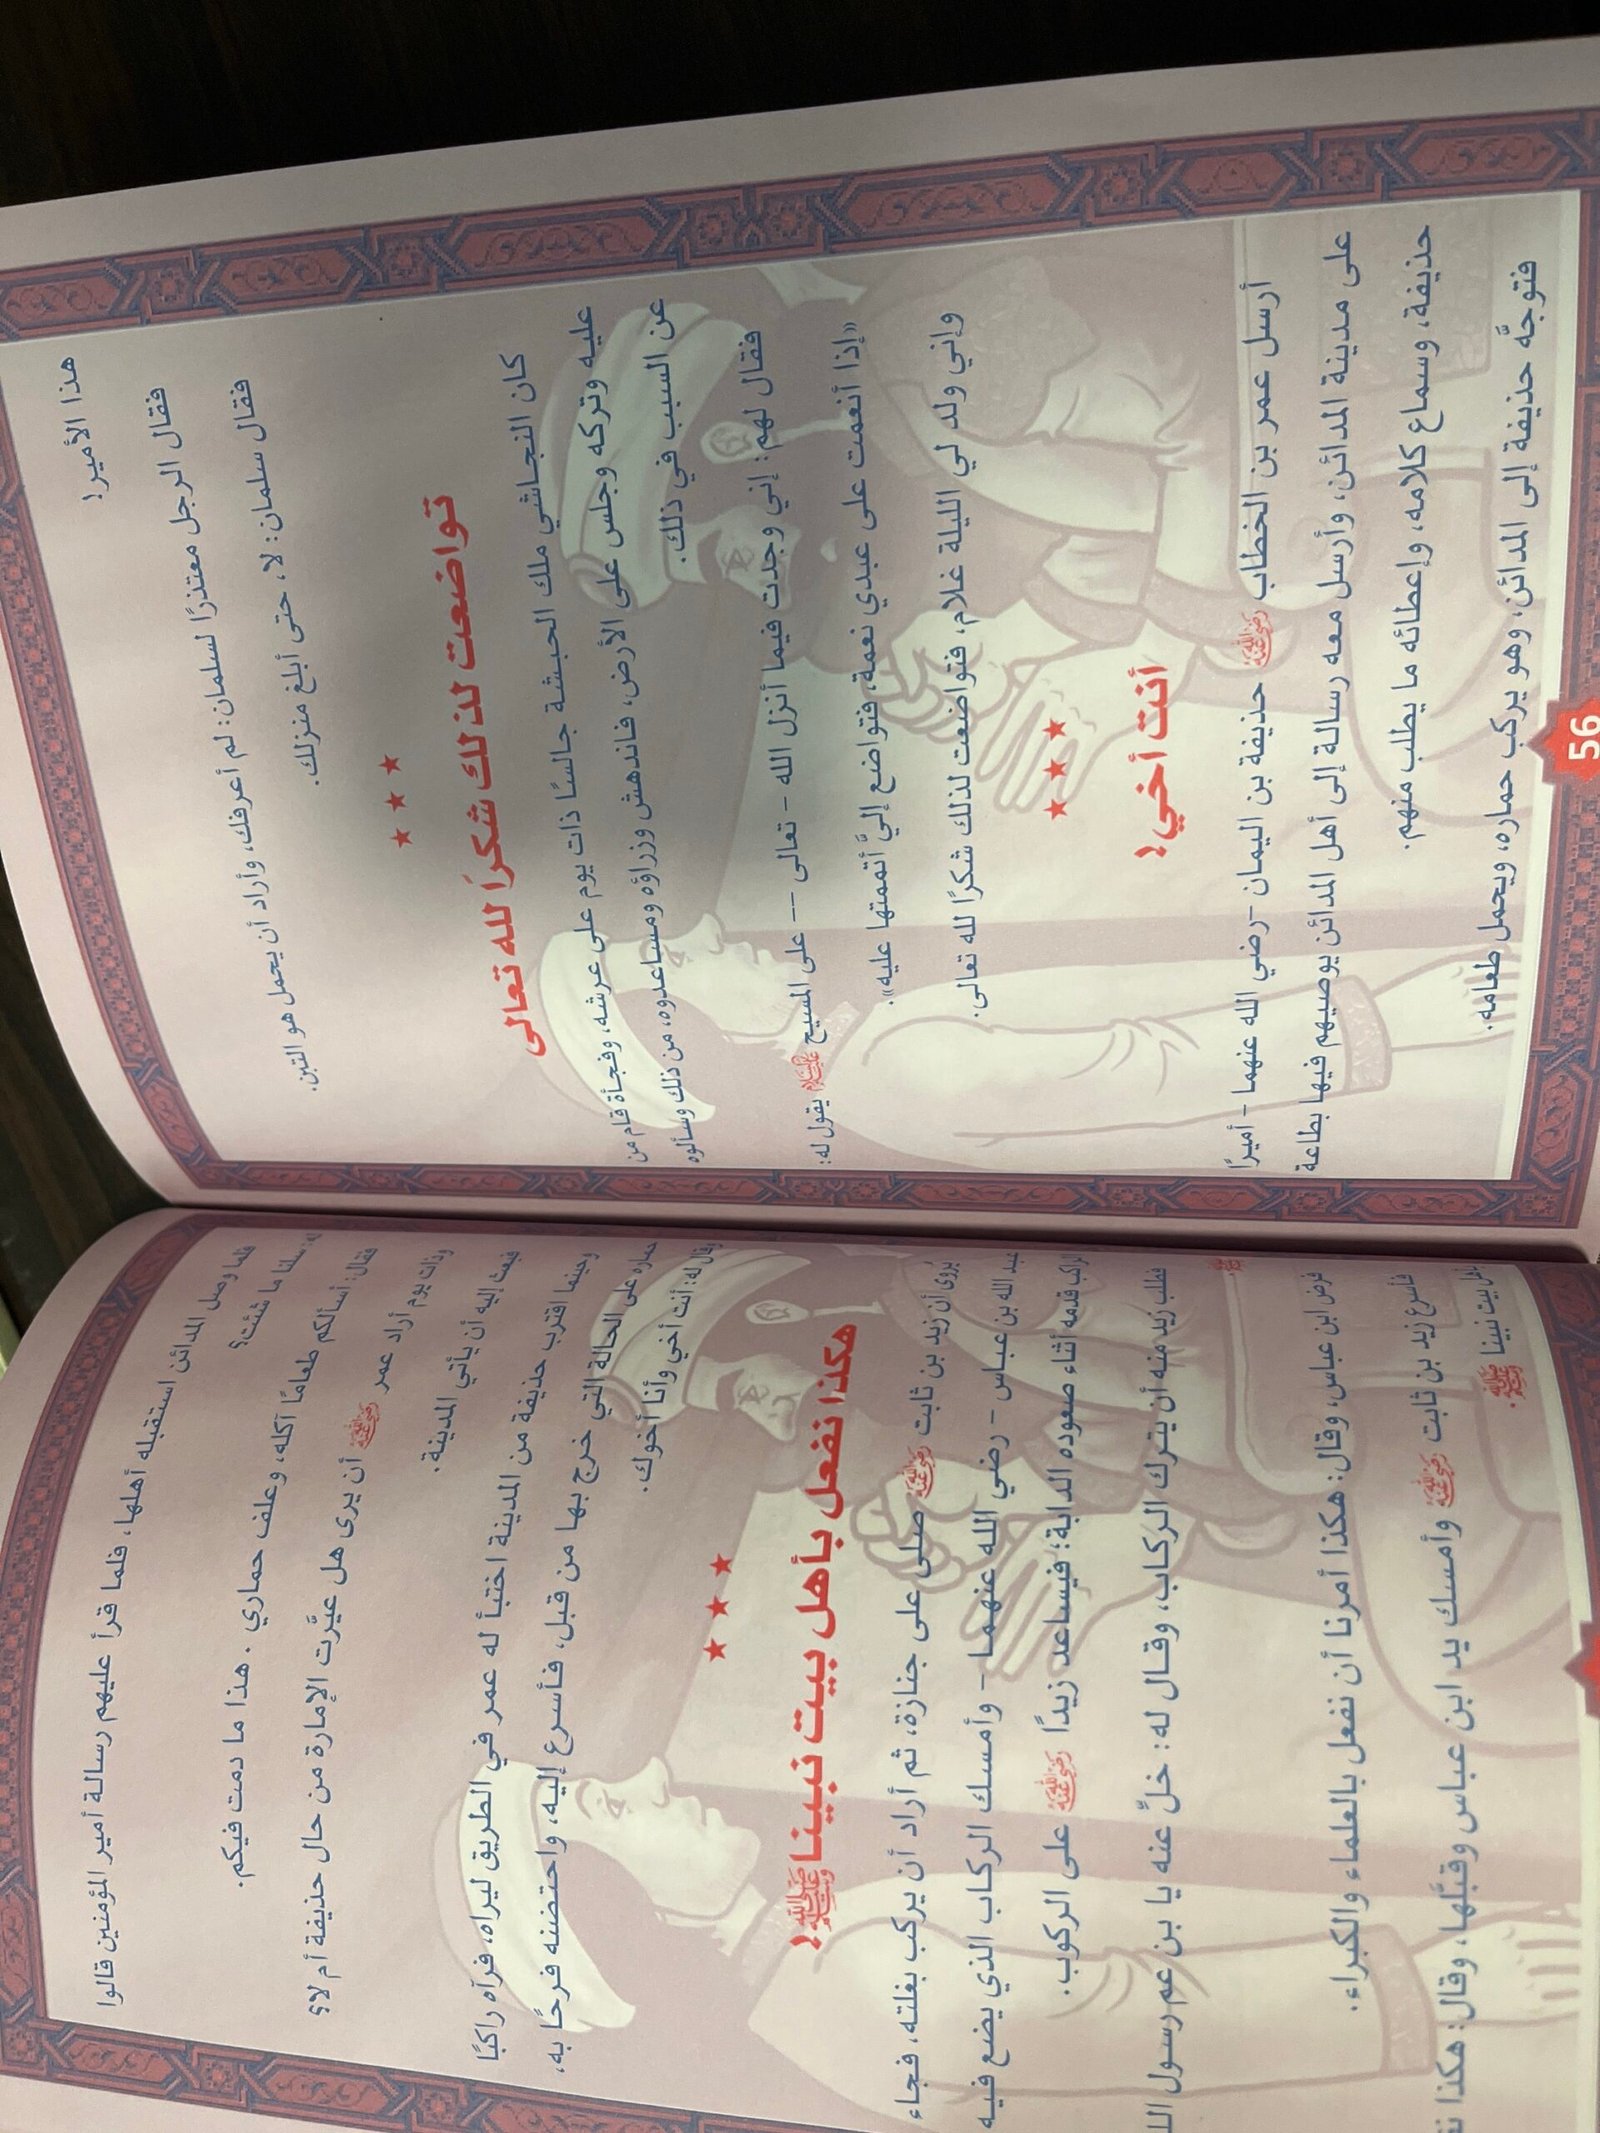 هذا الأمير!
فقال الرجل معتذرًا لسلمان: لم أعرفك، وأراد أن يحمل هو التبن.
فقال سلمان: لا، حتى أبلغ منزلك.
★ ★ ★
تواضعت لذلك شكرًا لله تعالى
كان النجاشي ملك الحبشة جالسًا ذات يوم على عرشه، وفجأة قام من
عليه وتركه وجلس على الأرض، فاندهش وزراؤه ومساعدوه، من ذلك وسألوه
عن السبب في ذلك.
فقال لهم: إني وجدت فيما أنزل الله - تعالى -- على المسيح عليه السلام يقول له:
«إذا أنعمت على عبدي نعمة، فتواضع إليَّ أتممتها عليه».
وإني ولد لي الليلة غلام، فتواضعت لذلك شكرًا لله تعالى.
★ ★ ★
أنت أخي!
أرسل عمر بن الخطاب رضي الله عنه حذيفة بن اليمان -رضي الله عنهما - أميرًا
على مدينة المدائن، وأرسل معه رسالة إلى أهل المدائن يوصيهم فيها بطاعة
حذيفة، وسماع كلامه، وإعطائه ما يطلب منهم.
فتوجَّه حذيفة إلى المدائن، وهو يركب حماره، ويحمل طعامه.
56
فلما وصل المدائن استقبله أهلها، فلما قرأ عليهم رسالة أمير المؤمنين قالوا
له: سلنا ما شئت؟
فقال: أسألكم طعامًا آكله، وعلف حماري . هذا ما دمت فيكم.
وذات يوم أراد عمر رضي الله عنه أن يرى هل غيَّرت الإمارة من حال حذيفة أم لا؟
فبعث إليه أن يأتي المدينة.
وحينما اقترب حذيفة من المدينة اختبأ له عمر في الطريق ليراه، فرآه راكبًا
حماره على الحالة التي خرج بها من قبل، فأسرع إليه، واحتضنه فرحًا به،
وقال له: أنت أخي وأنا أخوك.
★ ★ ★
هكذا نفعل بأهل بيت نبينا ﷺ!
يُروى أن زيد بن ثابت رضي الله عنه صلى على جنازة، ثم أراد أن يركب بغلته، فجاء
عبد الله بن عباس - رضي الله عنهما - وأمسك الركاب الذي يضع فيه
الراكب قدمه أثناء صعوده الدابة؛ فيساعد زيدًا رضي الله عنه على الركوب.
فطلب زيد منه أن يترك الركاب، وقال له: خلِّ عنه يا بن عم رسول
ﷺ.
فرفض ابن عباس، وقال: هكذا أمرنا أن نفعل بالعلماء والكبراء.
فأسرع زيد بن ثابت رضي الله عنه وأمسك يد ابن عباس وقبَّلها، وقال: هكذا
بأهل بيت نبينا ﷺ.